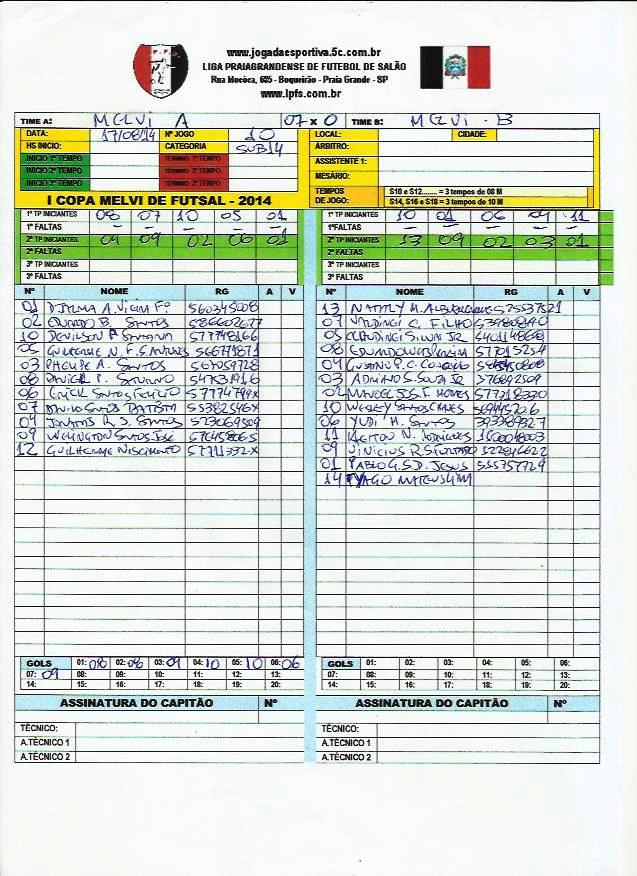 www.jogadaesportiva.5c.com.br
LIGA PRAIAGRANDENSE DE FUTEBOL DE SALÃO
Rua Mococa, 685 - Boqueirão - Praia Grande - SP
www.lpfs.com.br
TIME A: MELVI A 07 x 0 TIME B: MELVI - B
DATA: 17/08/14 Nº JOGO 10 LOCAL: CIDADE:
HS INICIO: CATEGORIA SUB14 ÁRBITRO:
INICIO 1º TEMPO TÉRMINO 1º TEMPO ASSISTENTE 1:
INICIO 2º TEMPO TÉRMINO 2º TEMPO MESÁRIO:
INICIO 3º TEMPO TÉRMINO 3º TEMPO
TEMPOS DE JOGO: S10 e S12........ = 3 tempos de 08 M
S14, S16 e S18 = 3 tempos de 10 M
I COPA MELVI DE FUTSAL - 2014
1º TP INICIANTES 08 07 10 05 01
1º FALTAS – – – – –
2º TP INICIANTES 04 09 02 06 01
2º FALTAS
3º TP INICIANTES
3º FALTAS
1º TP INICIANTES 10 01 06 09 11
1º FALTAS – – – – –
2º TP INICIANTES 13 09 02 03 01
2º FALTAS
3º TP INICIANTES
3º FALTAS
Nº NOME RG A V
01 DJALMA A. VIEIRA Fº
02 EDUARDO B. SANTOS 586602677
10 DENILSON P SANTANA 577748166
05 GUILHERME N. F. 566771871
03 A. SANTOS
08 DANIEL P.
06 ERICK SANTOS
07 SANTOS BATISTA 55382596X
04 JONATAS R. S. SANTOS 523069509
09 WELLINGTON SANTOS JOSÉ
12 GUILHERME NASCIMENTO 57711332-X
Nº NOME RG A V
13 NATALY M. 575537521
07 C. FILHO
05 CLAUDINEI S.
08 EDUARDO 577015254
04 GUSTAVO P. C.
03 ADRIANO S. SOUZA JR 376892509
02 MANOEL
10 WESLEY SANTOS
06 YUDI H. SANTOS
11 N. RODRIGUES
09 VINICIUS R. 522846622
01 PABLO G. S. D. JESUS 555757729
14 TYAGO MATEUS LIMA
GOLS 01: 08 02: 08 03: 09 04: 10 05: 10 06: 06
07: 09 08: 09: 10: 11: 12: 13:
14: 15: 16: 17: 18: 19: 20:
GOLS 01: 02: 03: 04: 05: 06:
07: 08: 09: 10: 11: 12: 13:
14: 15: 16: 17: 18: 19: 20:
ASSINATURA DO CAPITÃO Nº
TÉCNICO:
A.TÉCNICO 1
A.TÉCNICO 2
ASSINATURA DO CAPITÃO Nº
TÉCNICO:
A.TÉCNICO 1
A.TÉCNICO 2